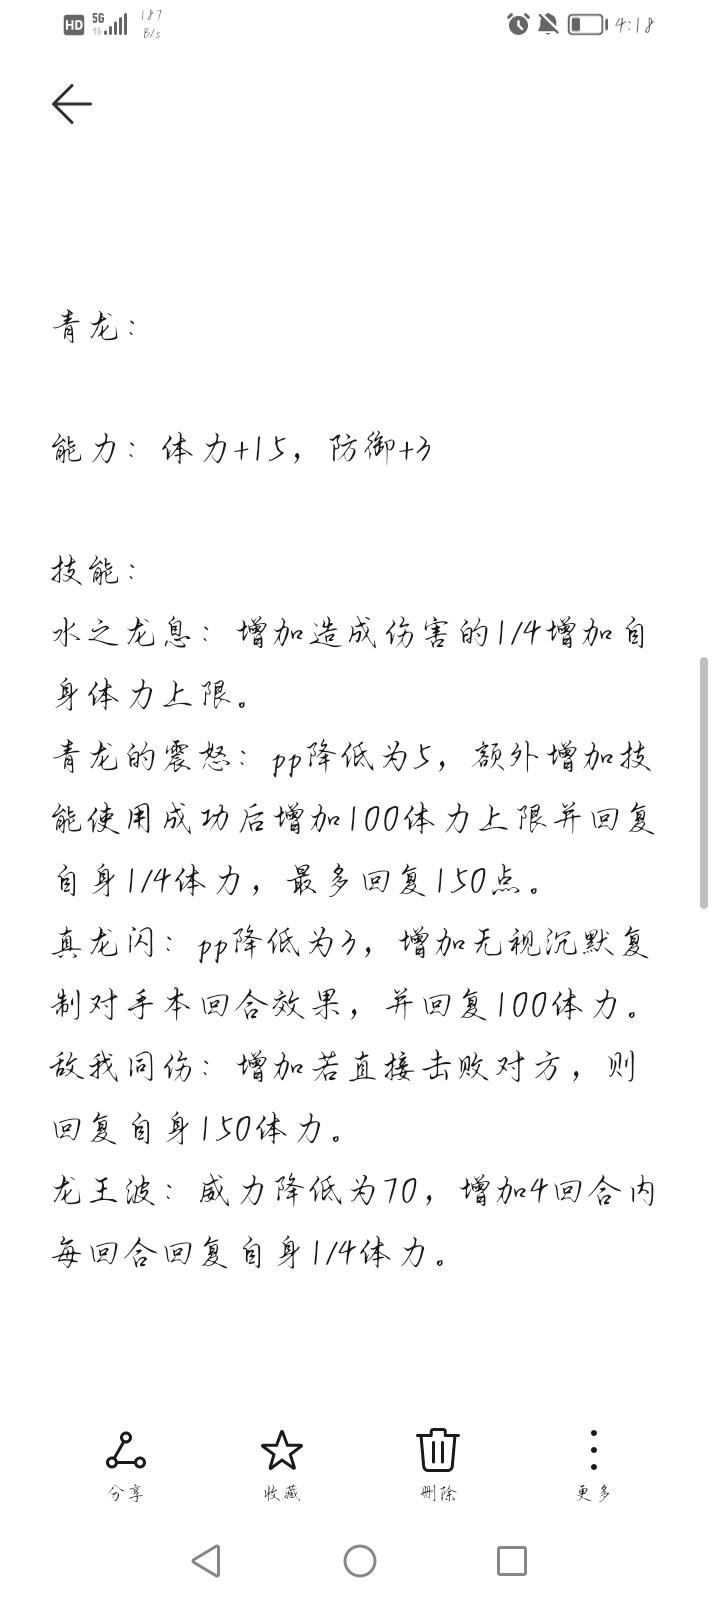 HD 5G 187 B/s 4:18
青龙：
能力：体力+15，防御+3
技能：
水之龙息：增加造成伤害的1/4增加自
身体力上限。
青龙的震怒：pp降低为5，额外增加技
能使用成功后增加100体力上限并回复
自身1/4体力，最多回复150点。
真龙闪：pp降低为3，增加无视沉默复
制对手本回合效果，并回复100体力。
敌我同伤：增加若直接击败对方，则
回复自身150体力。
龙王波：威力降低为70，增加4回合内
每回合回复自身1/4体力。
分享 收藏 删除 更多